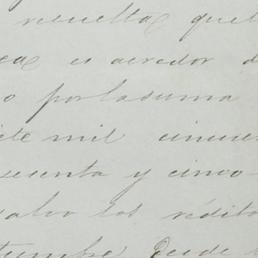 resulta que
es acredor d
o por la suma
mil cincuen
esenta y cinco
salvo los rédito
tumbre desde